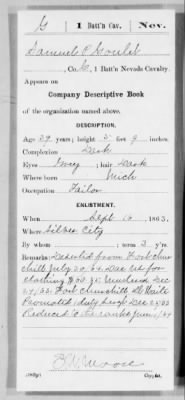 G | 1 Batt'n Cav. | Nev.
Samuel C
, Co. G, 1 Batt'n Nevada Cavalry.
Appears on
Company Descriptive Book
of the organization named above.
DESCRIPTION.
Age 29 years; height 5 feet 9 inches.
Complexion Dark
Eyes Grey; hair Dark
Where born Mich
Occupation Tailor
ENLISTMENT.
When Sept 16, 1863.
Where Silver City
By whom ; term 3 y'rs.
Remarks: Deserted from Fort Chur
chill July 20, 64. Due US for
clothing Dec
Fort Churchill
Promoted duty Sergt Dec 25/63
Reduced to the ranks June 1/64
Copyist.